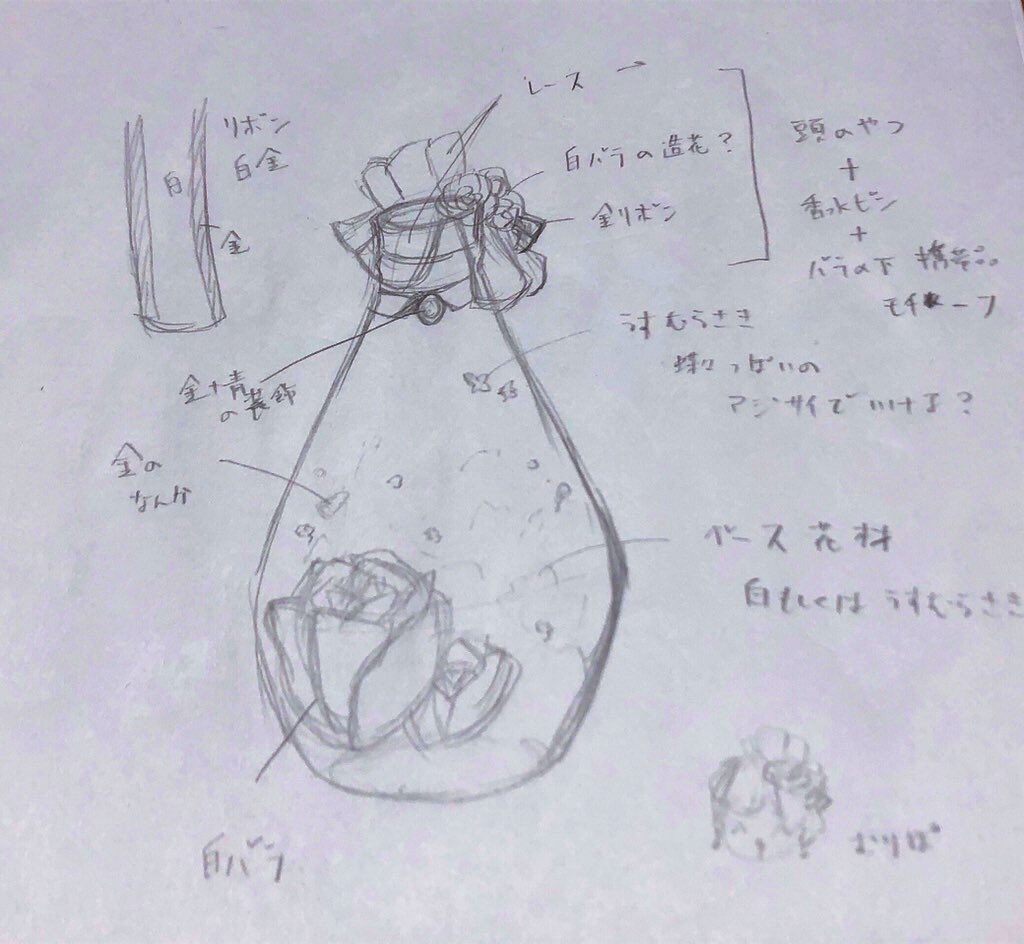 レース
リボン
白金
白
金
白バラの造花?
金リボン
頭のやつ
+
香水ビン
+
バラの下 携帯品
モチーフ
金+青
の装飾
うすむらさき
蝶々っぽいの
アジサイでいけよ?
金の
なんか
ベース花材
白もしくはうすむらさき
白バラ